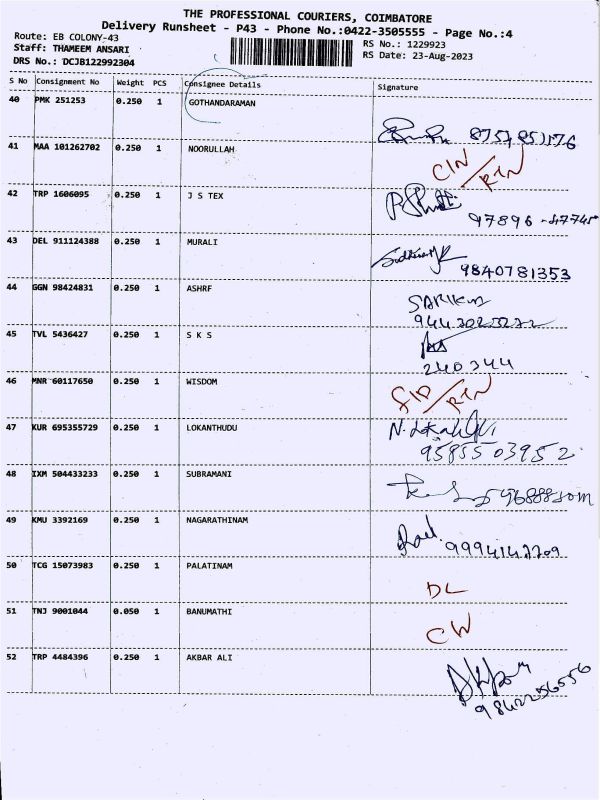 THE PROFESSIONAL COURIERS, COIMBATORE
Delivery Runsheet - P43 - Phone No.:0422-3505555 - Page No.:4
Route: EB COLONY-43
RS No.: 1229923
Staff: THAMEEM ANSARI
RS Date: 23-Aug-2023
DRS No.: DCJB122992304
S No Consignment No Weight PCS Consignee Details Signature
40 PMK 251253 0.250 1 GOTHANDARAMAN
8757851176
41 MAA 101262702 0.250 1 NOORULLAH
CIN/RTN
42 TRP 1606095 0.250 1 J S TEX
97896-47745
43 DEL 911124388 0.250 1 MURALI
9840781353
44 GGN 98424831 0.250 1 ASHRF
45 TVL 5436427 0.250 1 S K S
240344
46 MNR 60117650 0.250 1 WISDOM
/RTN
47 KUR 695355729 0.250 1 LOKANTHUDU
95855 03952
48 IXM 504433233 0.250 1 SUBRAMANI
49 KMU 3392169 0.250 1 NAGARATHINAM
9994142209
50 TCG 15073983 0.250 1 PALATINAM
DL
51 TNJ 9001044 0.050 1 BANUMATHI
CW
52 TRP 4484396 0.250 1 AKBAR ALI
9842256556